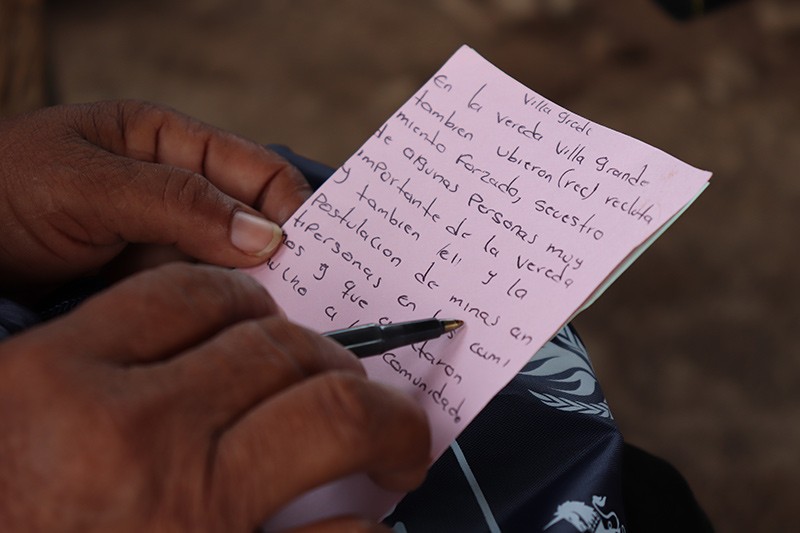 Villa gradi
En la vereda Villa grande
tambien ubieron (rec) recluta
miento Forzado, secuestro
de algunas Personas muy
importante de la vereda
y tambien y la
Postulacion de minas an
tipersonas en cami
nos y que
a comunidad